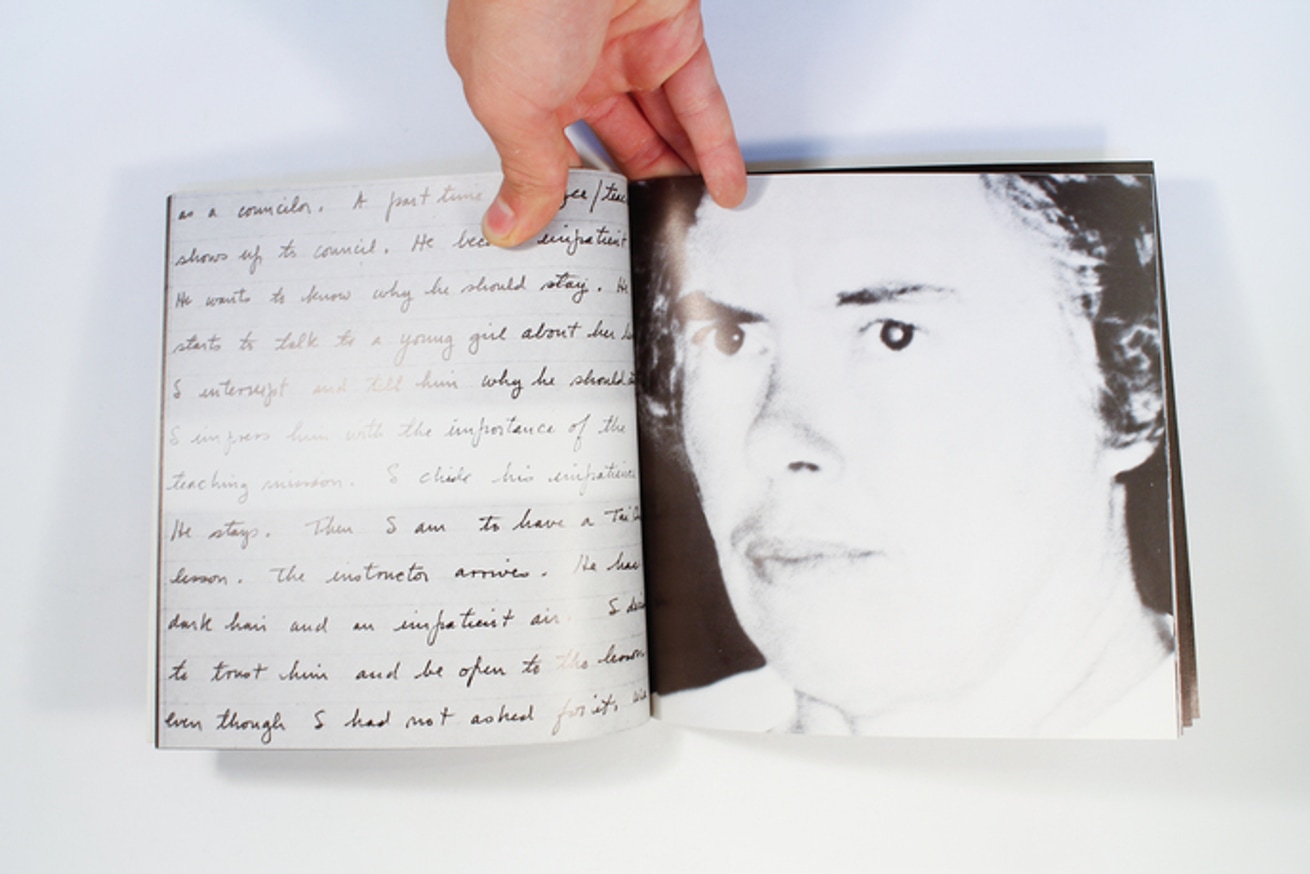 as a councilor. A part time /teac
shows up to council. He impatient
He wants to know why he should stay. He
starts to talk to a young girl about her
I interrupt and tell him why he should
I impress him with the importance of the
teaching mission. I chide his impatience
He stays. Then I am to have a Tai
lesson. The instructor arrives. He has
dark hair and an impatient air. I
to trust him and be open to the lesson
even though I had not asked for it.